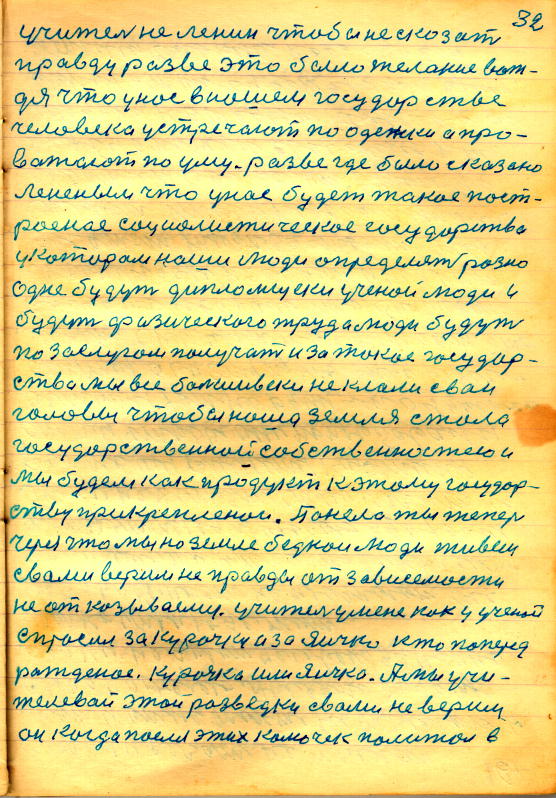 32
учител не ленин чтобы не сказат
правду разве это было желание вож-
дя что у нос в ношем государстве
человека устречают по одежки а про-
важают по уму. разве где было сказано
Лененым что у нас будет такое пост-
роеное социолистическое государства
укоторам наши люди определят розно
одне будут дипломуски ученой люди и
будут физического труда люди будут
по заслугом получат и за токое государ-
ства мы все болшивеки не клали сваи
головы чтобы ноша земля стола
государственной собственностею и
мы будем как продукт к этому государ-
ству прикрепленои. Понела ты тепер
через что мы но земле беднои люди живем
свами верим не правды от зависемости
не отказываемы. учител у мене как у ученой
спросил за курочку и за яичко кто поперед
рожденое. Курочка или яичка. А мы учи-
телевай этой разведки свами не верим
он когда поеля этих камочек политол в